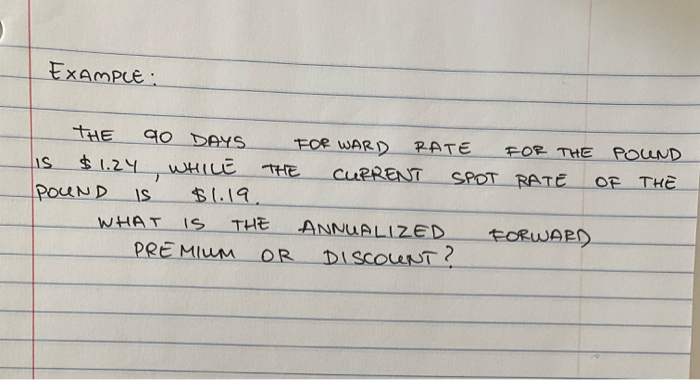 EXAMPLE:
THE 90 DAYS FORWARD RATE FOR THE POUND
IS $1.24, WHILE THE CURRENT SPOT RATE OF THE
POUND IS $1.19.
WHAT IS THE ANNUALIZED FORWARD
PREMIUM OR DISCOUNT?